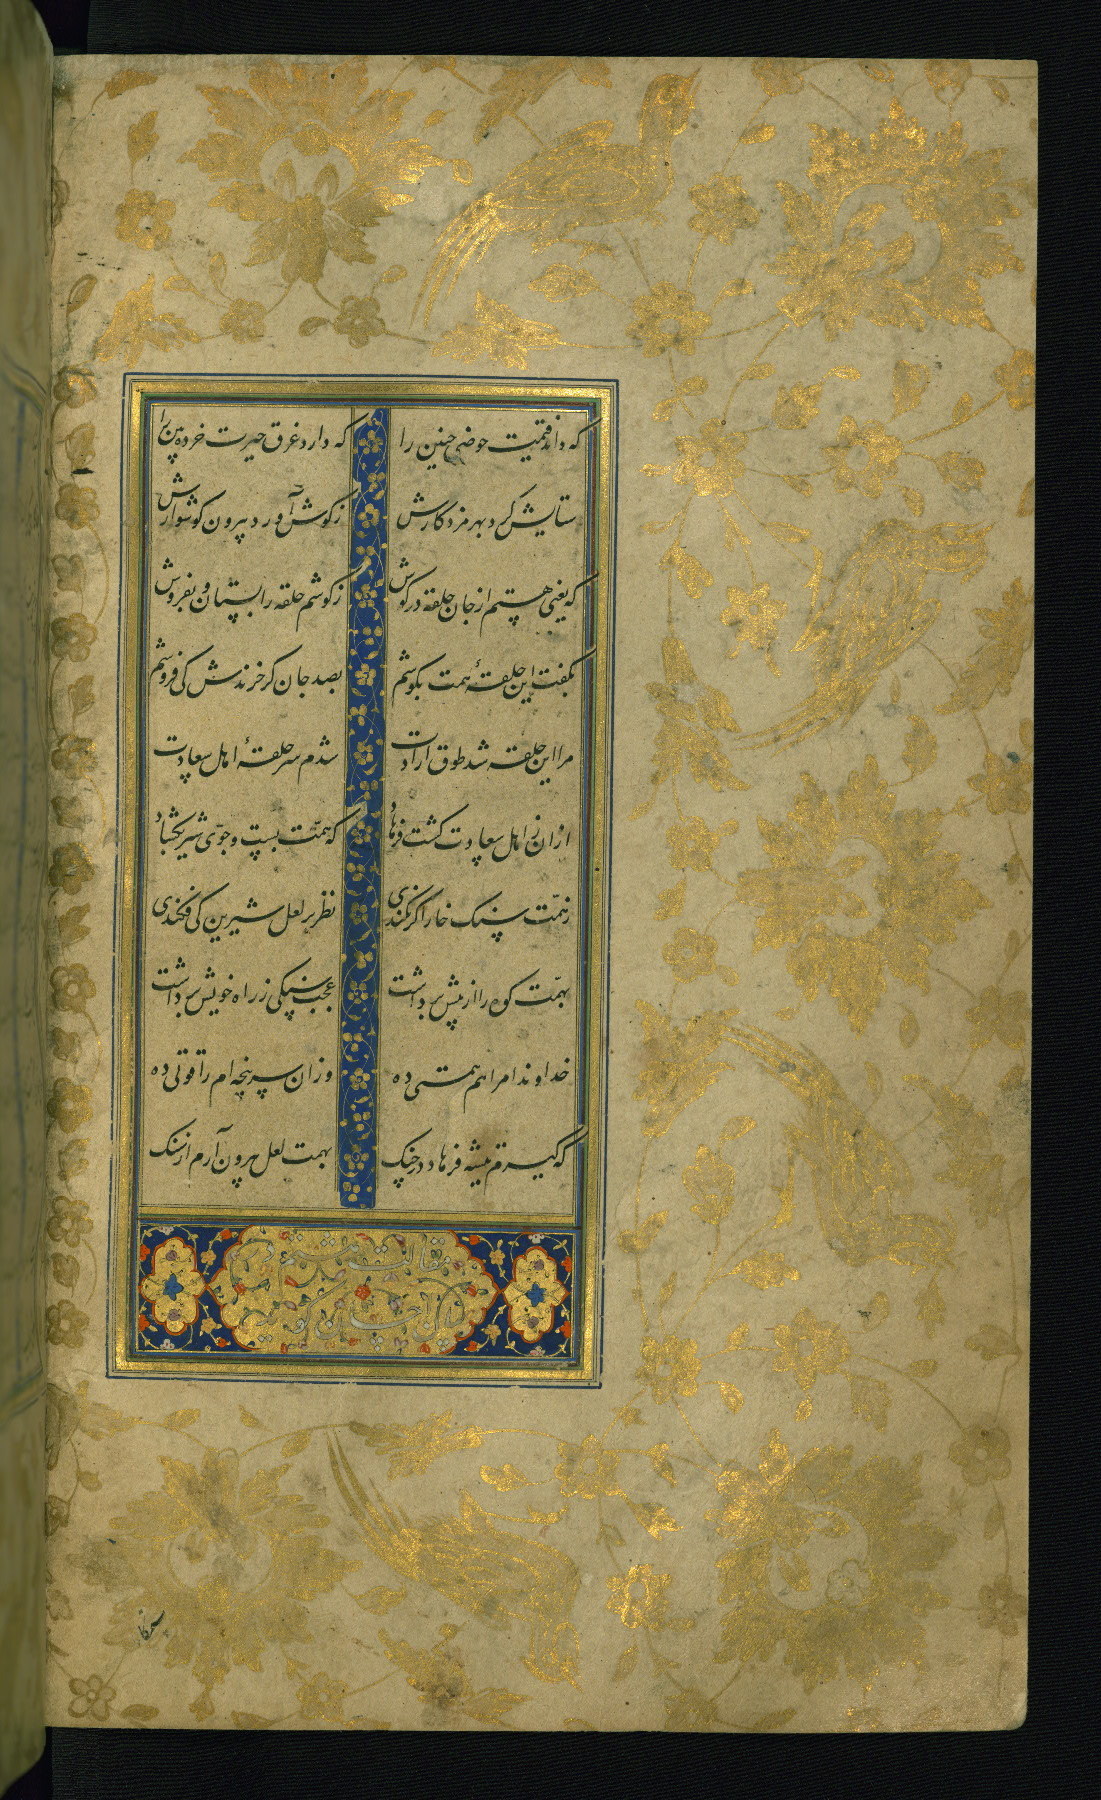 که داند قیمت حوضی چنین را که دارد غرق حیرت خرده بین را
ستایش کرد بهر مزد کارش ز گوش آورد بیرون گوشوارش
که یعنی هستم از جان حلقه در گوش ز گوشم حلقه را بستان و بفروش
بگفت این حلقهٔ همت بگوشم بصد جان گر خرندش کی فروشم
مرا این حلقه شد طوق ارادت شدم سر حلقهٔ اهل سعادت
از آن ز اهل سعادت گشت فرهاد که همّت بست و جوی شیر بگشاد
ز همّت سنک خارا گر نکندی نظر بر لعل شیرین کی فکندی
بهمّت کوه را از پیش برداشت عجب سنگی ز راه خویش برداشت
خداوندا مرا هم همتی ده وزان سرپنجه ام را قوتی ده
که گیرم تیشه فرهاد در چنک بهمت لعل بیرون آرم از سنک